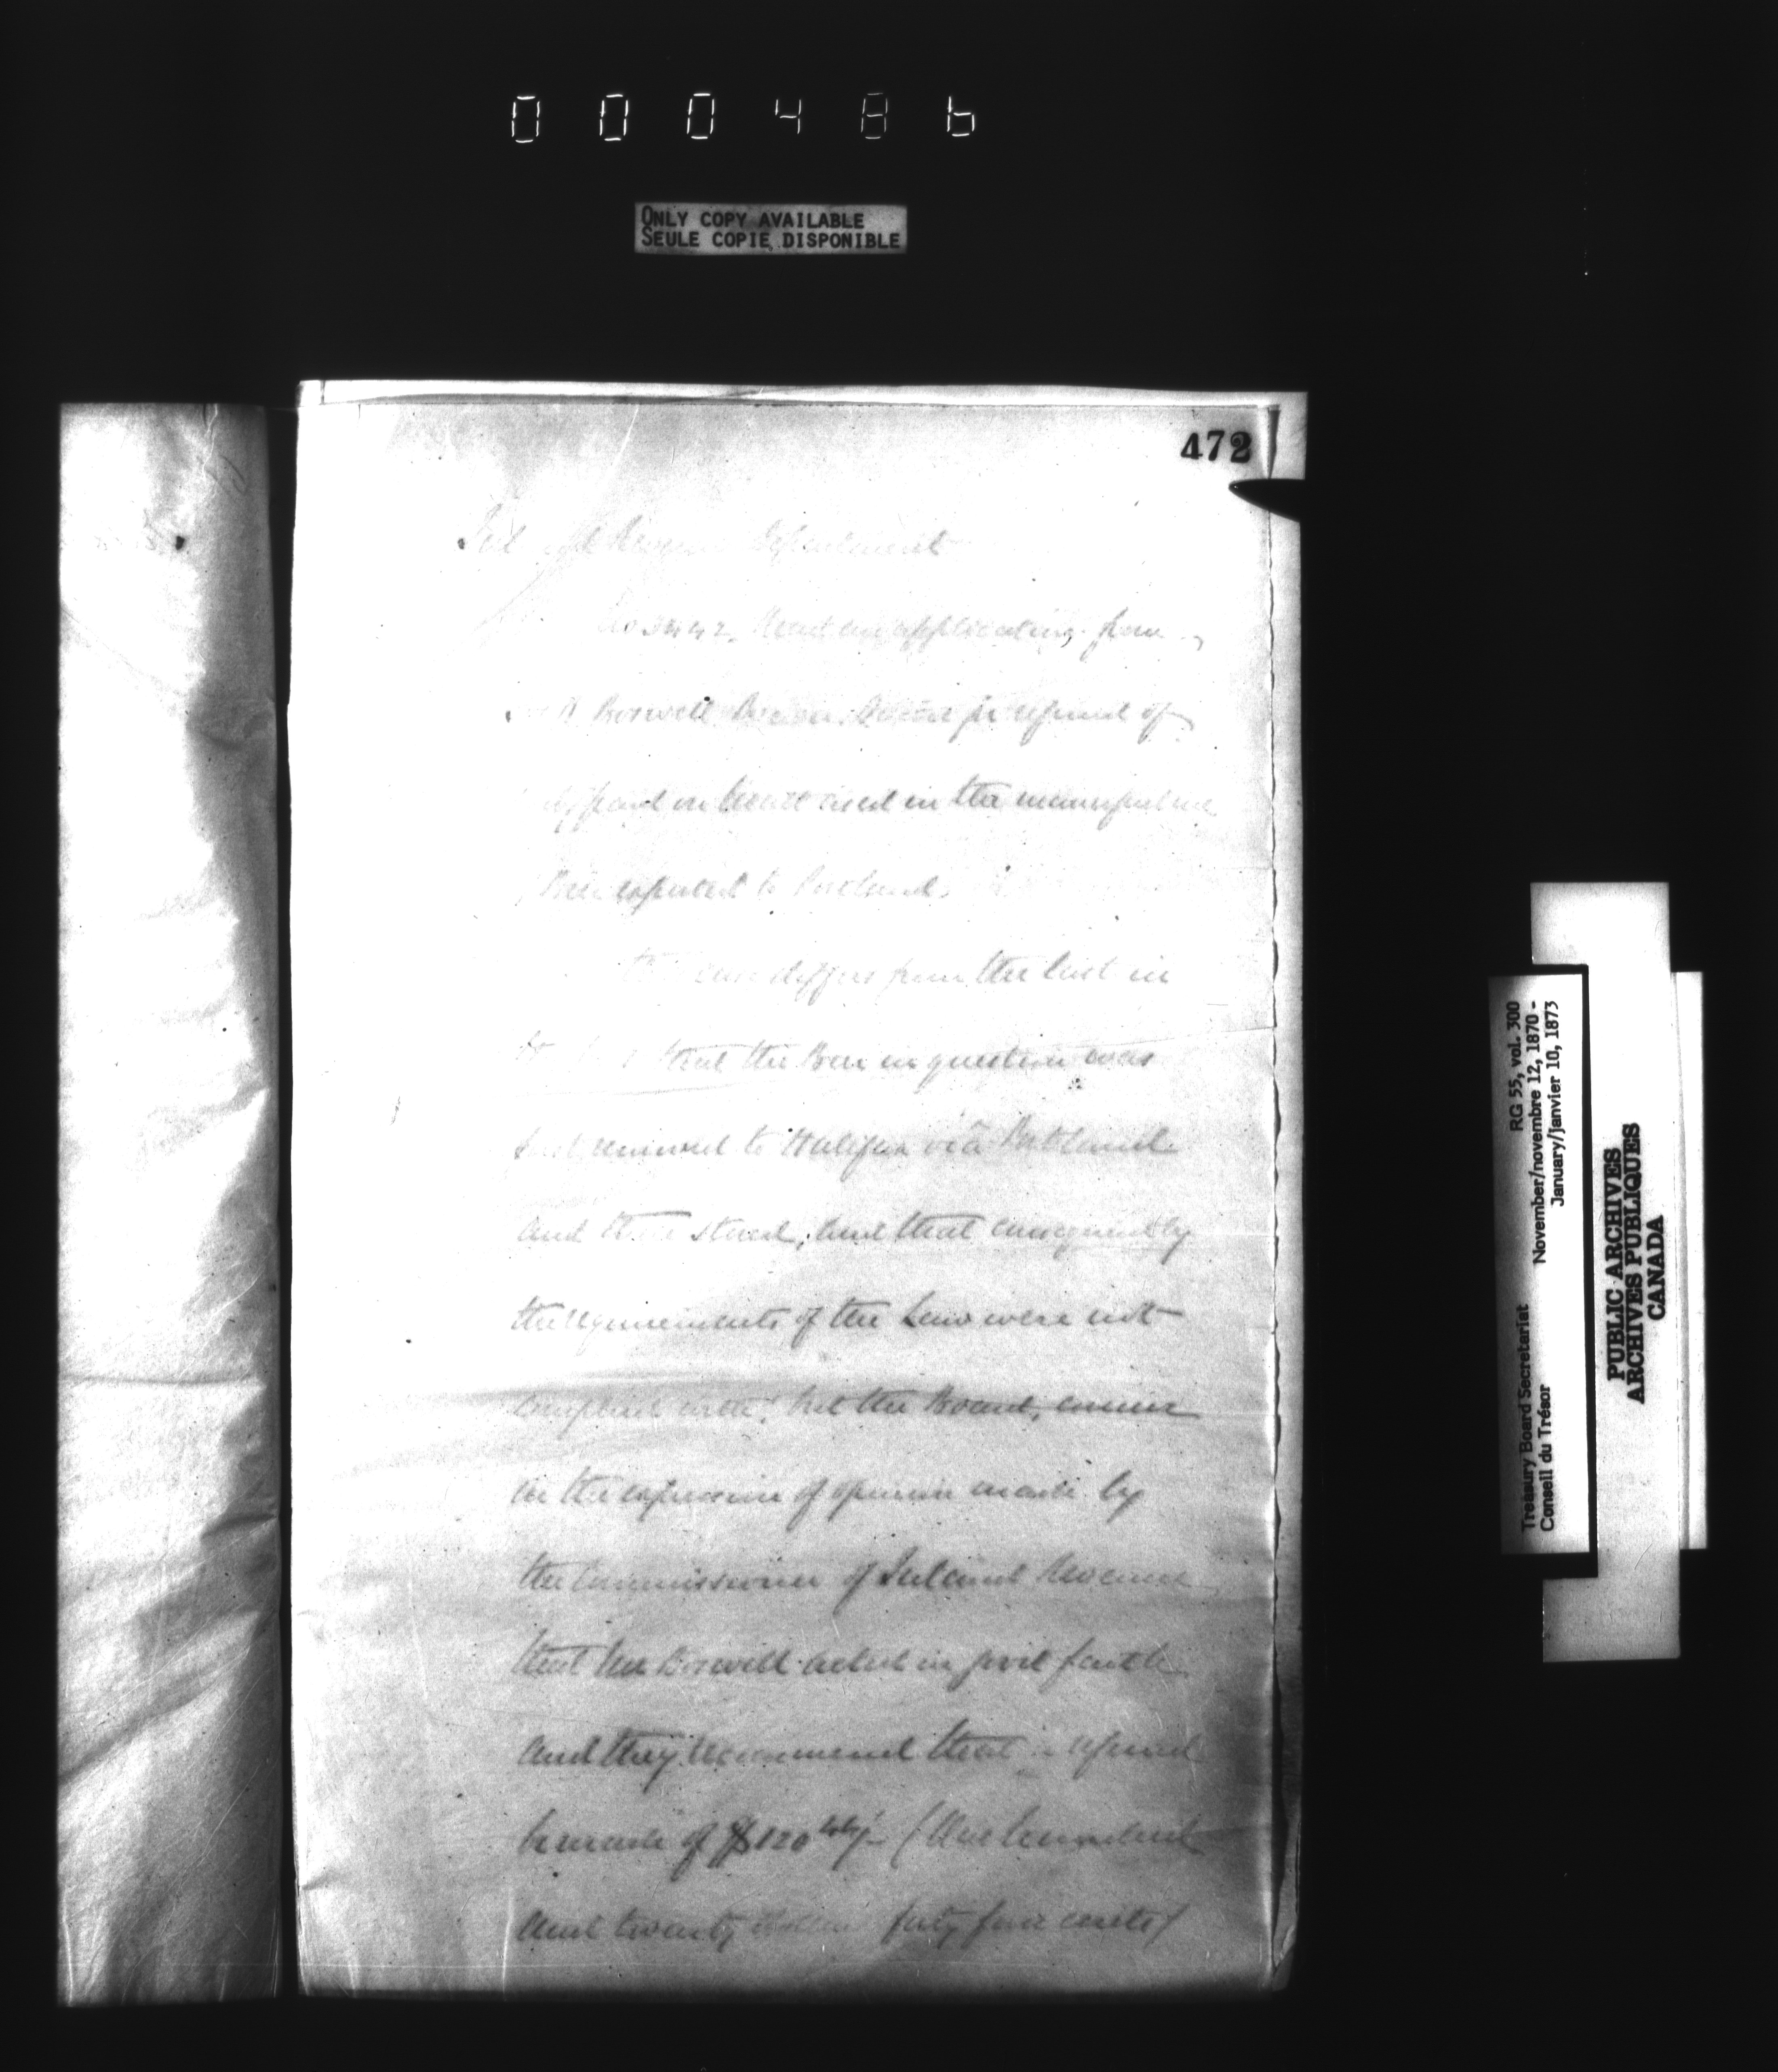 000486
ONLY COPY AVAILABLE
SEULE COPIE DISPONIBLE
472
Department
No 3442. Read an application from
Boswell for refund of
paid on Malt used in the manufacture
Beer exported to Portland.
case differs from the last in
that the Beer in question was
removed to Halifax via Portland
and there stored, and that consequently
the requirements of the Law were not
complied with, but the Board, concur
in the expression of opinion made by
the Commissioner of Inland Revenue
that Mr Boswell acted in good faith
and they recommend that a refund
be made of $120 (One hundred
and twenty dollars forty four cents)
Treasury Board Secretariat RG 55, vol. 300
Conseil du Trésor November/novembre 12, 1870 -
January/janvier 10, 1873
PUBLIC ARCHIVES
ARCHIVES PUBLIQUES
CANADA